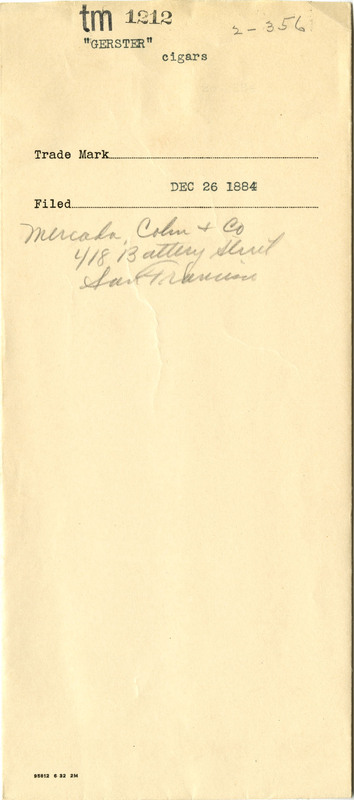 tm 1212
2-356
"GERSTER"
cigars
Trade Mark
DEC 26 1884
Filed
Mercado, Cohn & Co
418 Battery Street
San Francisco
95812 6 32 2M